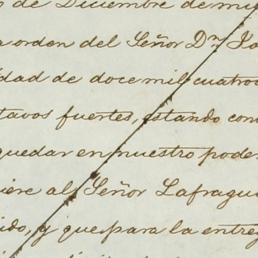 de Diciembre de mi
orden del Señor Dn Jo
dad de doce mil cuatro
tavos fuertes, estando con
quedar en nuestro pode
iere al Señor Lafragu
ido, y que para la entre